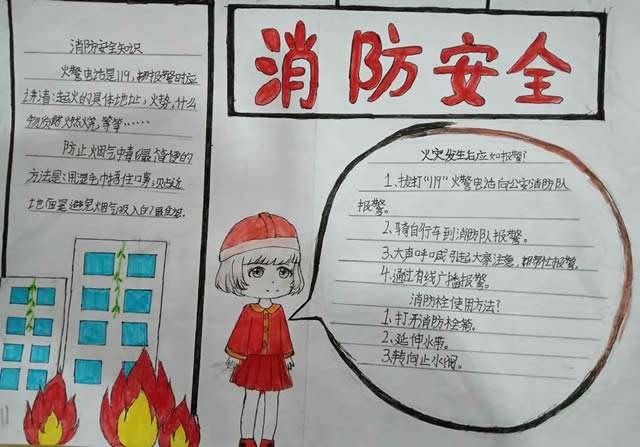 消防安全
消防安全知识
火警电话是119,
讲清:起火的具体地址,火势,什么
物质燃烧,等等……
防止烟气中毒最简便的
方法是:用湿毛巾捂住口鼻,
地面是避免烟气吸入的
火灾发生后应如报警?
1、拔打"119"火警电话向公安消防队
报警。
2、骑自行车到消防队报警。
3、大声呼喊引起大家注意,帮忙报警。
4、通过有线广播报警。
消防栓使用方法?
1、打开消防栓箱。
2、延伸水带。
3、转向止水阀。